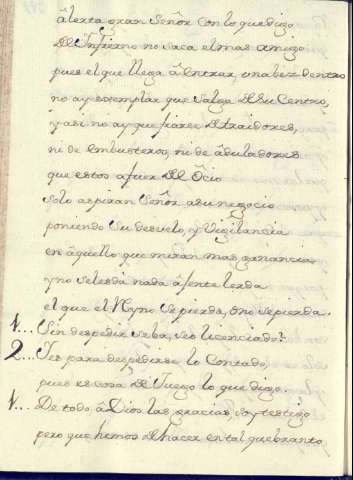 âlerta gran Señor con lo que digo
del Infierno no saca el mas amigo
pues el que llega â entrar, una bez dentro
no ay exemplar que salga de su Centro,
y asi no ay que fiarse de traidores,
ni de embusteros, ni de âduladores
que estos a fuer de Ôcio
solo aspiran Señor a su negocio
poniendo su desvelo, y Vigilancia
en âquello que miran mas ganancia
y no seles dâ nada â jente lerda
el que el Reyno se pierda, ô no se pierda.
1... Sin despedir se ba, seo licenciado?
2... Ies para despedirse lo Contado,
pues es cosa de Juego lo que digo.
1... De todo â Dios las gracias, soy testigo
pero que hemos de hacer en tal quebranto,